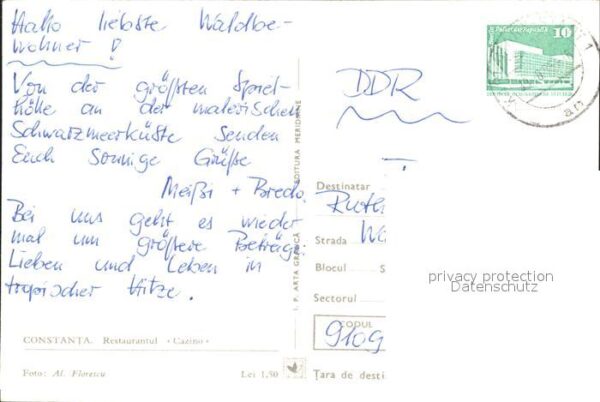 Hallo liebste Waldbe-
wohner !
Von der größten Spiel-
höhle an der malerischen
Schwarzmeerküste senden
Euch sonnige Grüße
Meißi + Bredo.
Bei uns geht es wieder
mal um größere Beträge.
Lieben und Leben in
tropischer Hitze.
CONSTANȚA. Restaurantul «Cazino»
Foto: Al. Florescu Lei 1,50
I. P. ARTA GRAFICĂ
EDITURA MERIDIANE
DDR
10
Palast der Republik
DDR
Destinatar
Ruth
Strada Wa
Blocul S
Sectorul
CODUL
9109
Țara de desti
privacy protection
Datenschutz